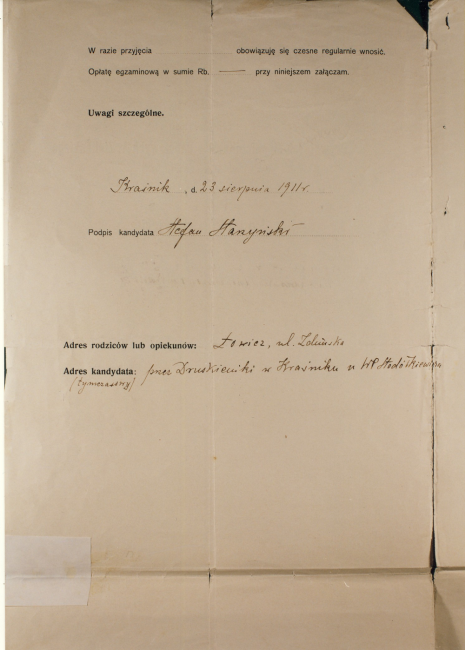 W razie przyjęcia obowiązuję się czesne regularnie wnosić.
Opłatę egzaminową w sumie Rb. — przy niniejszem załączam.
Uwagi szczególne.
Kraśnik, d 23 sierpnia 1911 r
Podpis kandydata Stefan Starzyński
Adres rodziców lub opiekunów: Łowicz, ul. Zduńska
Adres kandydata: przez Druskieniki w Kraśniku u WP
(tymczasowy)